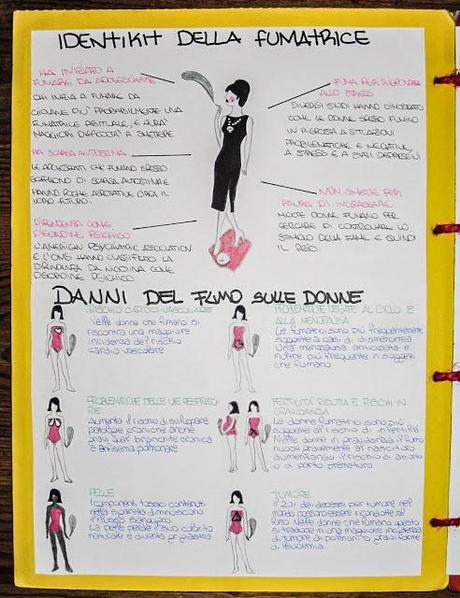 IDENTIKIT DELLA FUMATRICE
HA INIZIATO A
FUMARE DA ADOLESCENTE
CHI INIZIA A FUMARE DA
GIOVANE PIU' PROBABILMENTE UNA
FUMATRICE ABITUALE, E AVRA'
MAGGIORI DIFFICOLTA' A SMETTERE
HA SCARSA AUTOSTIMA
LE ADOLESCENTI CHE FUMANO SPESSO
SOFFRONO DI SCARSA AUTOSTIMA E
HANNO POCHE ASPETTATIVE CIRCA IL
LORO FUTURO.
DIPENDENZA COME
DISORDINE PSICHICO
L'AMERICAN PSYCHIATRIC ASSOCIATION
E L'OMS HANNO CLASSIFICATO LA
DIPENDENZA DA NICOTINA COME
DISORDINE PSICHICO
FUMA PER RISPONDERE
ALLO STRESS
DIVERSI STUDI HANNO DIMOSTRATO
COME LE DONNE SPESSO FUMINO
IN RISPOSTA A SITUAZIONI
PROBLEMATICHE E NEGATIVE,
A STRESS E A STATI DEPRESSIVI
NON SMETTE PER
PAURA DI INGRASSARE
MOLTE DONNE FUMANO PER
CERCARE DI CONTROLLARE LO
STIMOLO DELLA FAME E QUINDI
IL PESO
DANNI DEL FUMO SULLE DONNE
RISCHIO CARDIO-VASCOLARE
Nelle donne che fumano si
riscontra una maggiore
incidenza del rischio
cardio vascolare
PROBLEMATICHE LEGATE AL CICLO E
ALLA MENOPAUSA
Le fumatrici sono più frequentemente
soggette a casi di dismenorrea
Una menopausa anticipata è
inoltre più frequente in soggetti
che fumano
PROBLEMATICHE DELLE VIE RESPIRATO-
RIE
Aumenta il rischio di sviluppare
patologie croniche anche
gravi quali bronchite cronica
e enfisema polmonare
FERTILITÀ RIDOTTA E RISCHI IN
GRAVIDANZA
Le donne fumatrici sono più
soggette al rischio di infertilità
Nelle donne in gravidanza il fumo
nuoce gravemente al nascituro
aumentando il rischio di aborto
o di parto prematuro
PELLE
I componenti tossici contenuti
nella sigaretta diminuiscono
il flusso sanguigno
La pelle perde il suo colorito
naturale e diventa grigiastra
TUMORE
Il 20% dei decessi per tumore nel
mondo possono essere ricondotte al
fumo. Nelle donne che fumano questo
si traduce in una maggiore incidenza
di tumore ai polmoni o gravi forme
di leucemia.